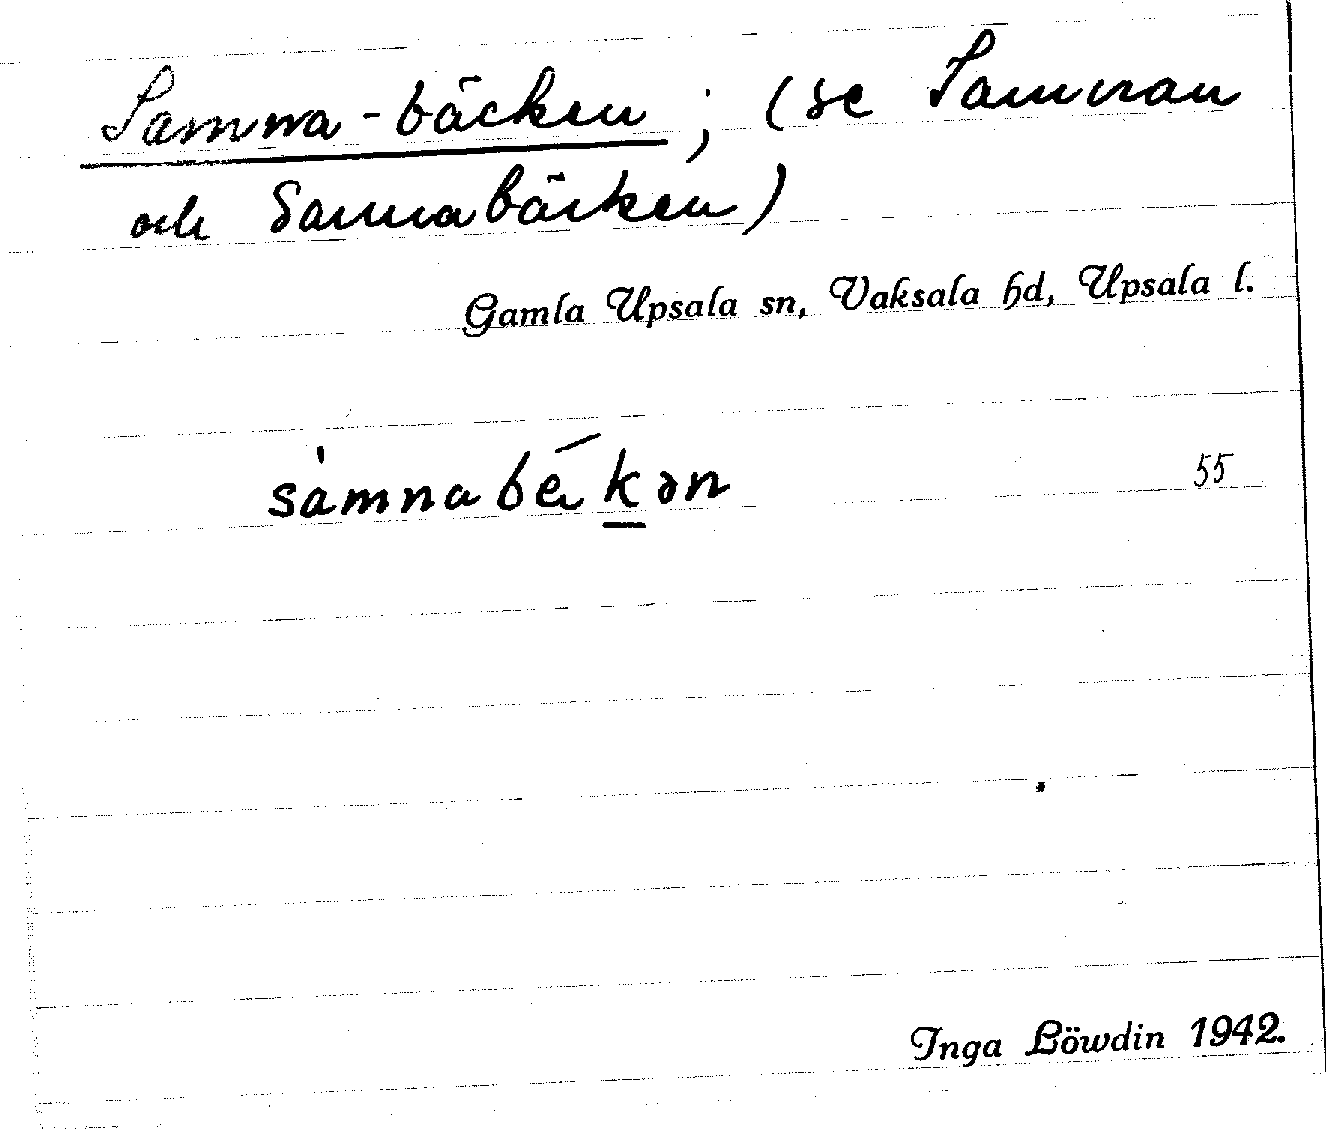 Samna-bäcken ; (se Samnan
och Sannabäcken)
Gamla Upsala sn, Vaksala hd, Upsala l.
sàmnabǽkən 55
Inga Löwdin 1942.